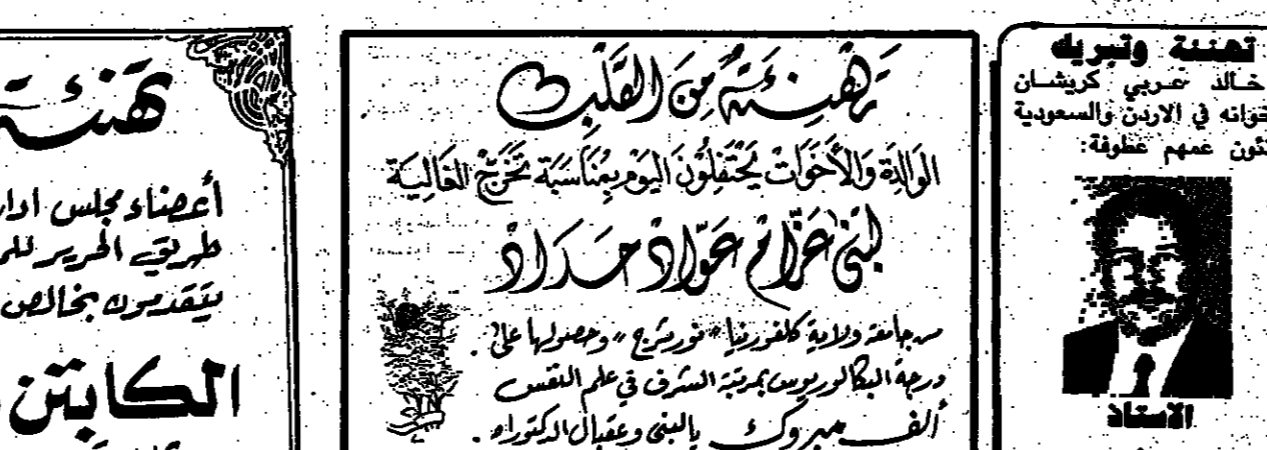 تهنئة وتبريك
خالد عربي كريشان
خوانه في الاردن والسعودية
ئون عمهم عطوفة:
الاستاذ
تهنئة من القلب
الوالدة والأخوات يحتفلون اليوم بمناسبة تخرج الغالية
لبنى عزام عواد حداد
من جامعة ولاية كلفورنيا "نورثرج" وحصولها على
درجة البكالوريوس بمرتبة الشرف في علم النفس
ألف مبروك يالبنى وعقبال الدكتوراه.
تهنئة
أعضاء مجلس ادار
طريق الحرير للر
يتقدمون بخالص
الكابتن